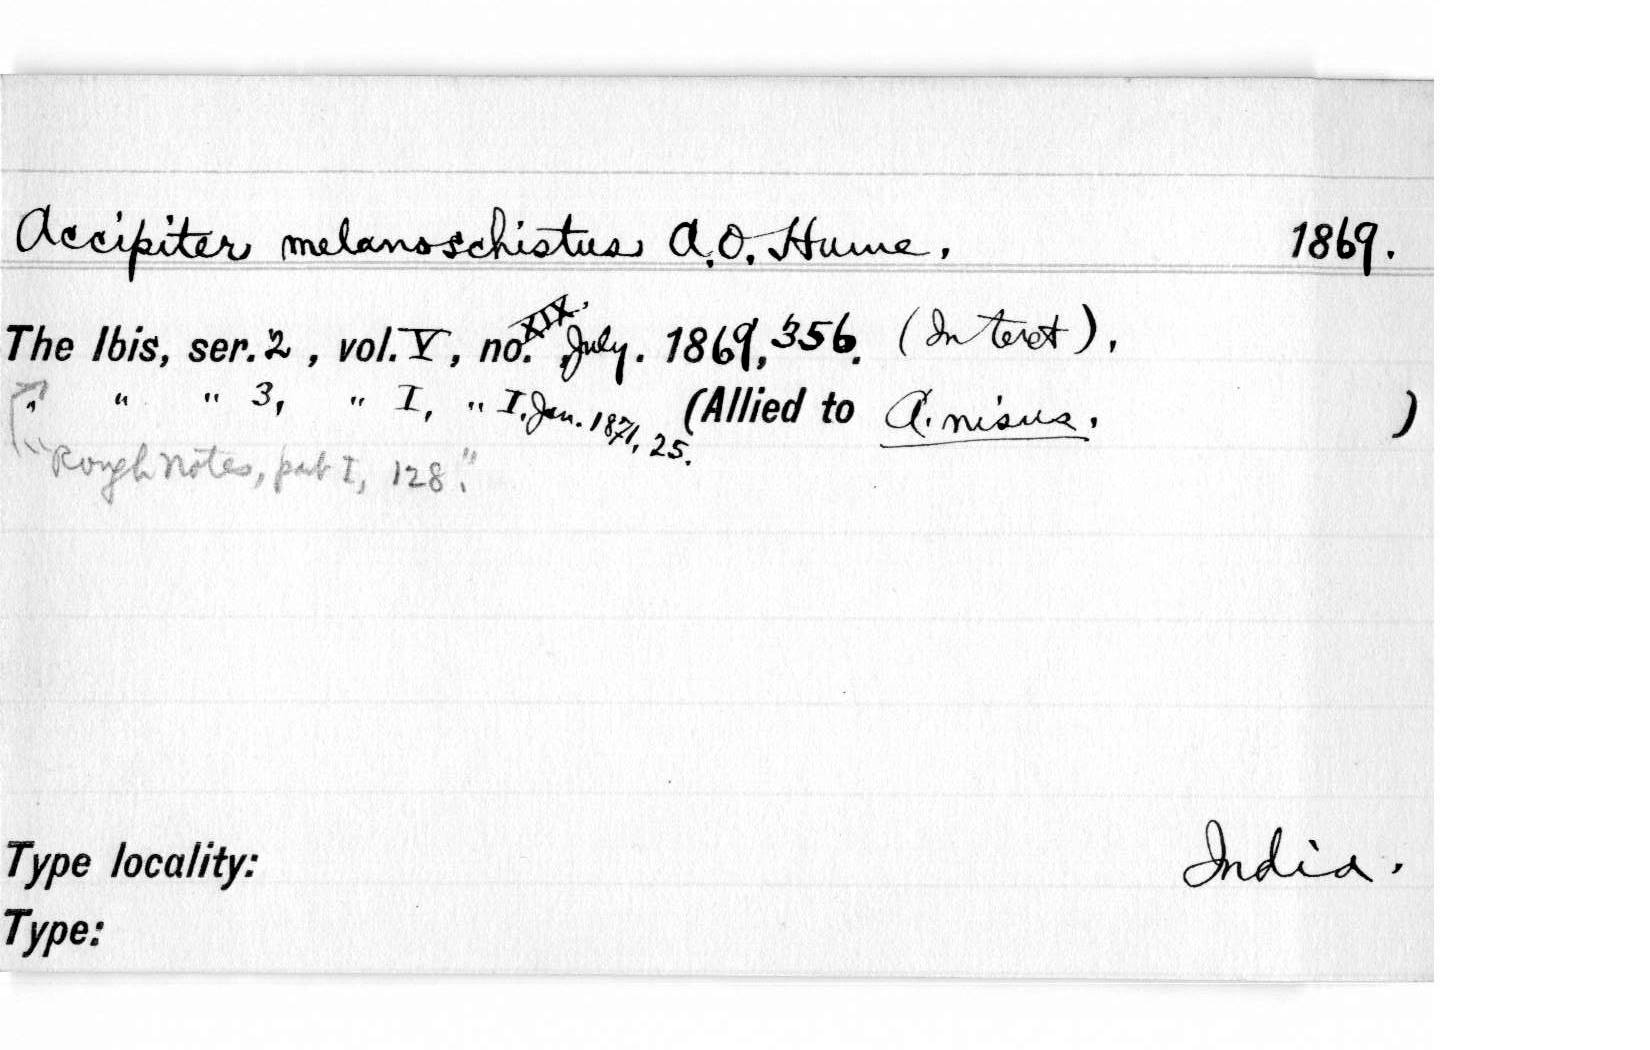 Accipiter melanoschistus A.O. Hume. 1869.
The Ibis, ser. 2, vol. V, no. XIX, July. 1869, 356. (In text),
" " " 3, " I, " I, Jan. 1871, 25. (Allied to A. nisus. )
"Rough Notes, part I, 128."
Type locality: India.
Type: